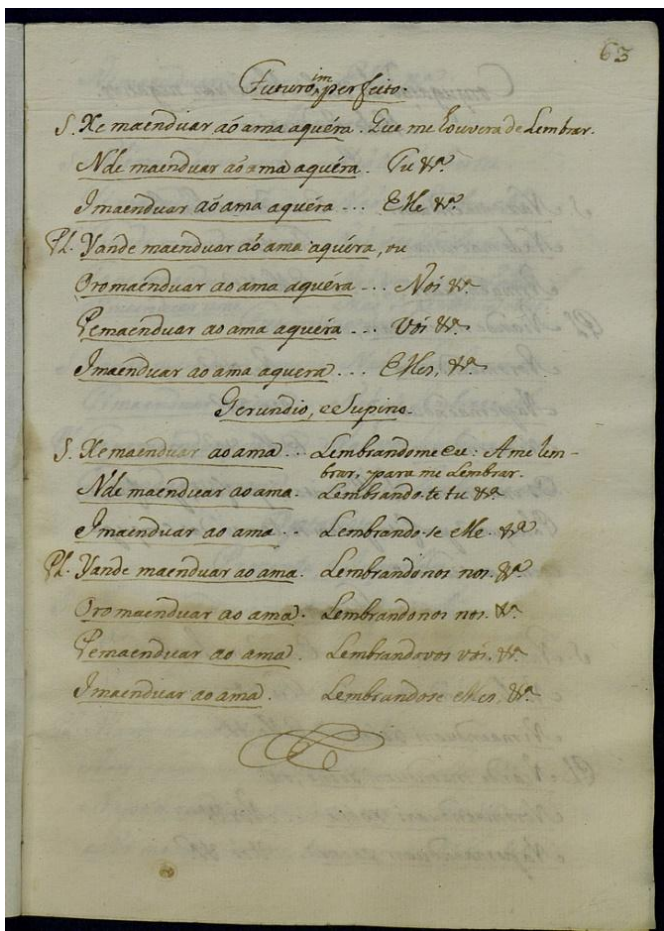 63
Futuro imperfeito.
S. Xe maenduar aóama aquéra. Que me houvera de Lembrar.
Nde maenduar aóama aquéra. Tu &ª
Imaenduar aóama aquéra... Elle &ª
Pl. Yande maenduar aóama aquéra, ou
Oromaenduar aoama aquéra... Nós &ª
Pemaenduar aoama aquéra... Vós &ª
Imaenduar aoama aquera... Elles, &ª
Gerundio, e Supino.
S. Xe maenduar aoama... Lembrandome eu: A me lem-
brar, para me Lembrar.
Nde maenduar aoama. Lembrando-te tu &ª
Imaenduar ao ama... Lembrando-se elle. &ª
Pl. Yande maenduar ao ama. Lembrandonos nos. &ª
Oromaenduar ao ama. Lembrandonos nos. &ª
Pemaenduar ao ama. Lembrandovos vós. &ª
Imaenduar ao ama. Lembrandose elles, &ª